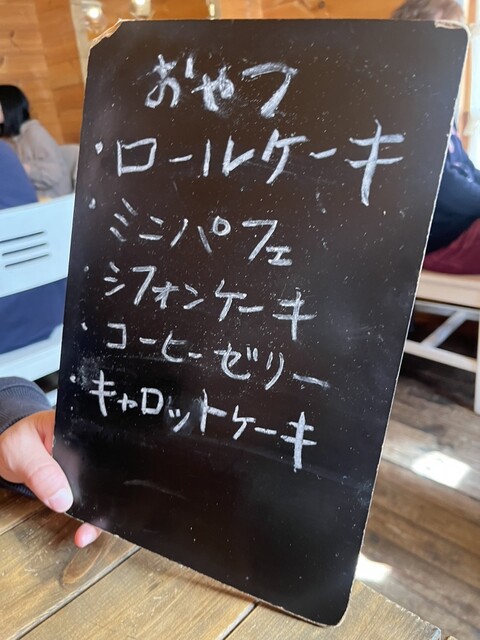 おやつ
・ロールケーキ
・ミニパフェ
・シフォンケーキ
・コーヒーゼリー
・キャロットケーキ